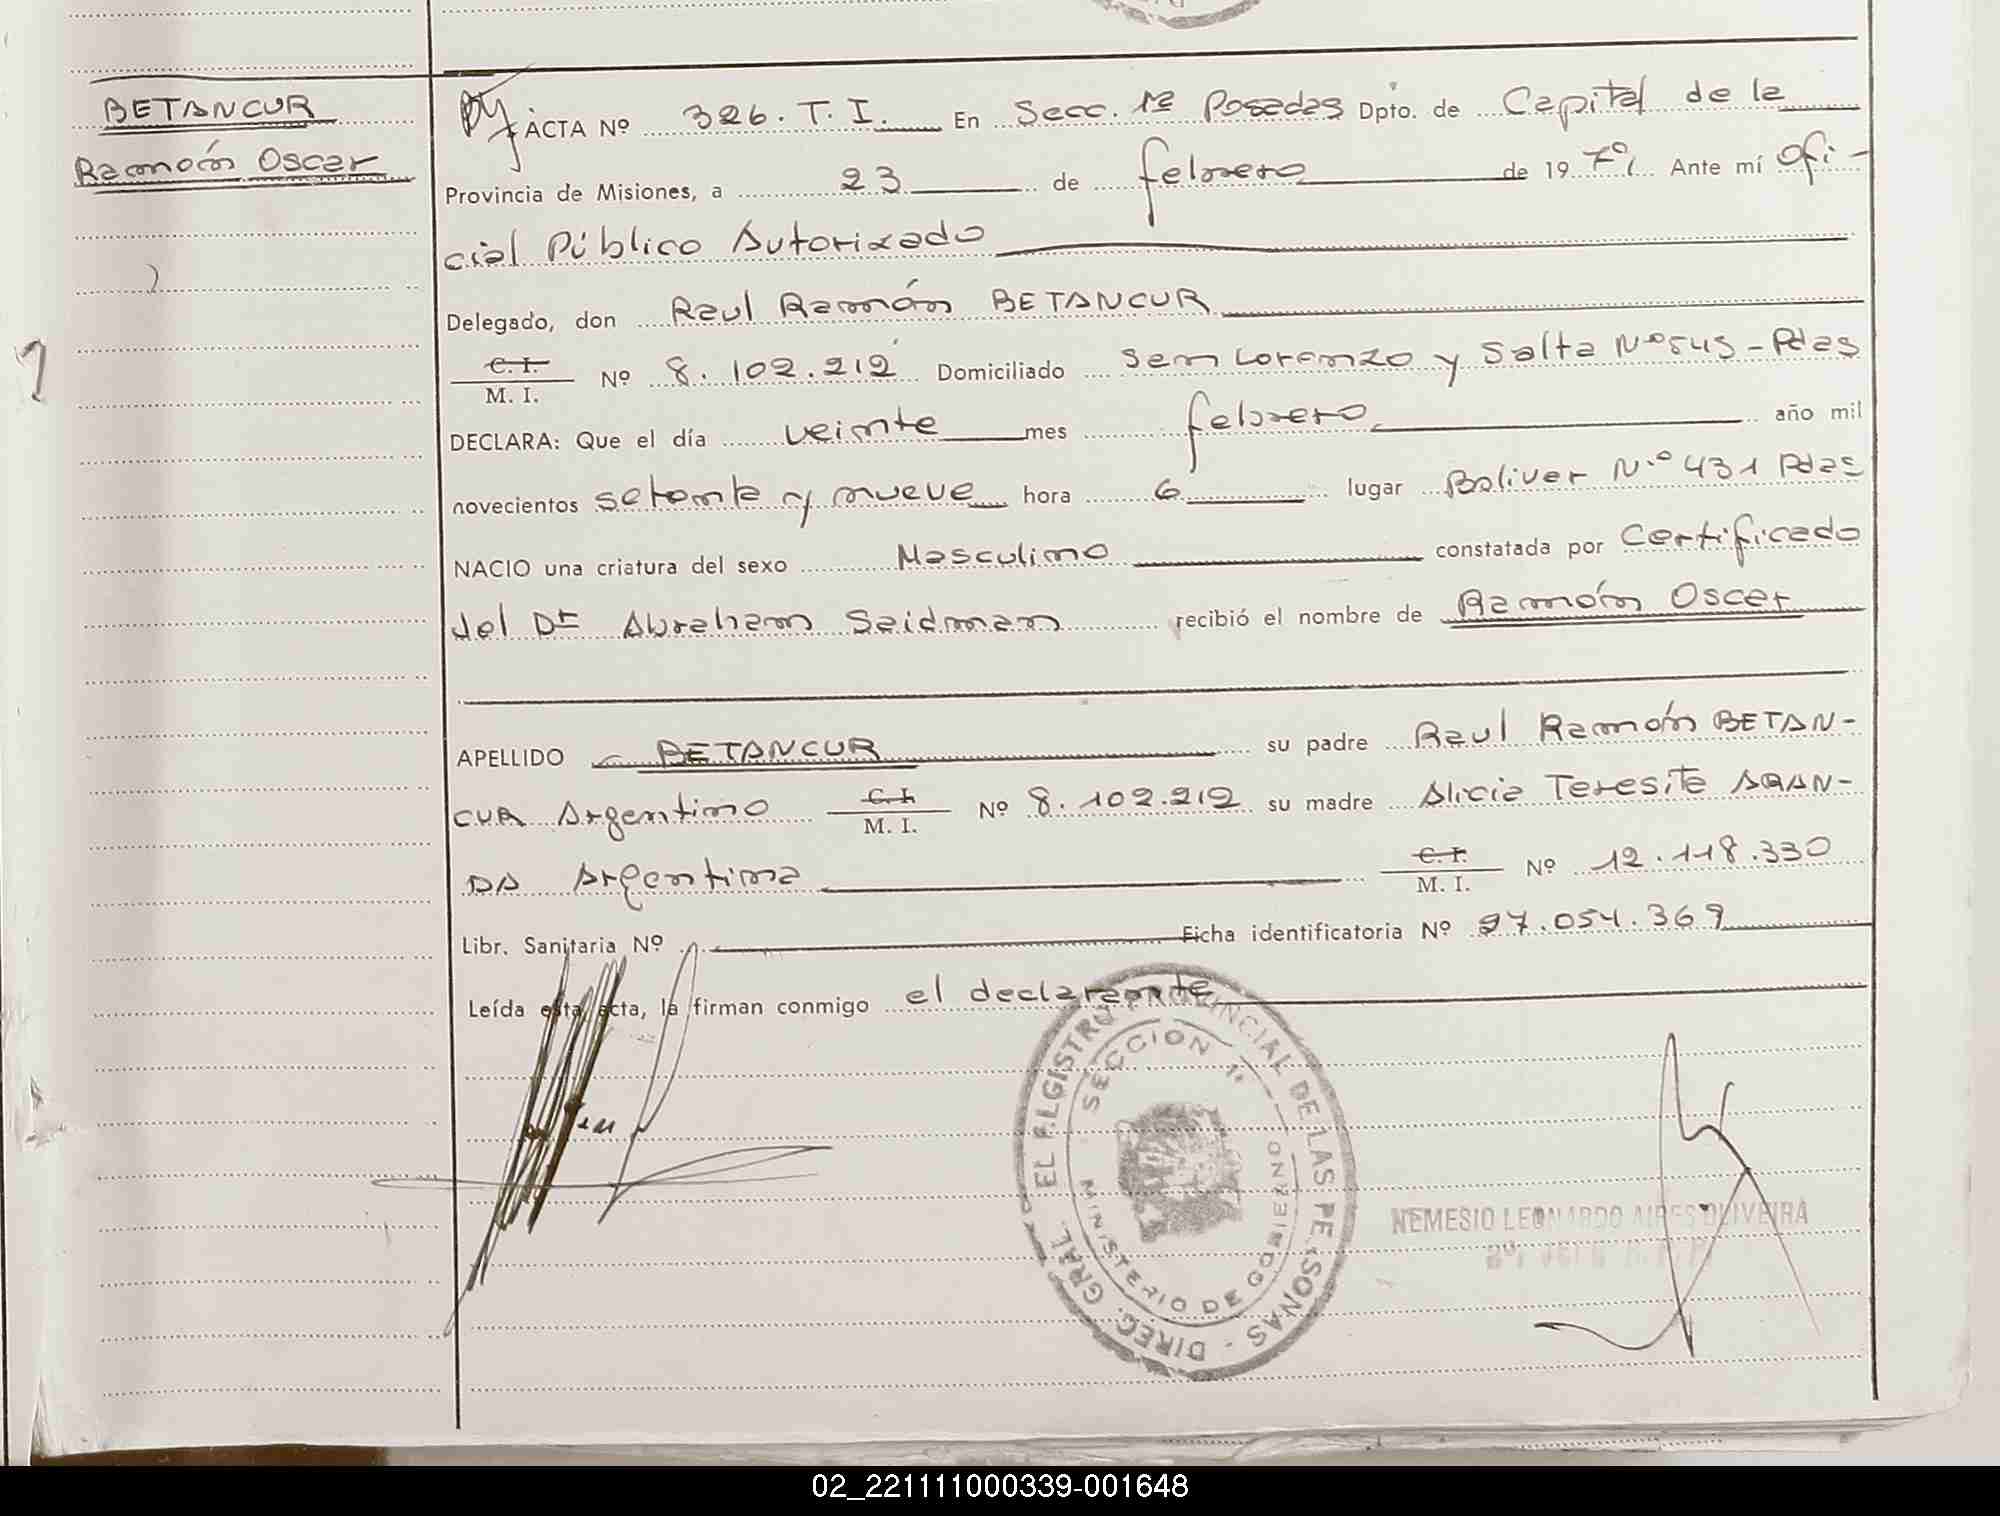 BETANCUR
Ramón Oscar
ACTA Nº 326. T. I. En Secc. 1ª Posadas Dpto. de Capital de la
Provincia de Misiones, a 23 de febrero de 1979. Ante mí Ofi-
cial Público Autorizado
Delegado, don Raul Ramón BETANCUR
C. I.
M. I.
Nº 8.102.212 Domiciliado San Lorenzo y Salta Nº 545 - Pdas
DECLARA: Que el día veinte mes febrero año mil
novecientos setenta y nueve hora 6 lugar Bolivar N.º 431 Pdas
NACIO una criatura del sexo Masculino constatada por Certificado
del Dr Abraham Saidman recibió el nombre de Ramón Oscar
APELLIDO BETANCUR su padre Raul Ramón BETAN-
CUR Argentino C. I. M. I. Nº 8.102.212 su madre Alicia Teresita ARAN-
DA Argentina C. I. M. I. Nº 12.118.330
Libr. Sanitaria Nº Ficha identificatoria Nº 27.054.369
Leída esta acta, la firman conmigo el declarante
DIREC. GRAL. DEL REGISTRO PROVINCIAL DE LAS PERSONAS
SECCION 1ª
MINISTERIO DE GOBIERNO
NEMESIO LEONARDO AIRES OLIVEIRA
02_221111000339-001648